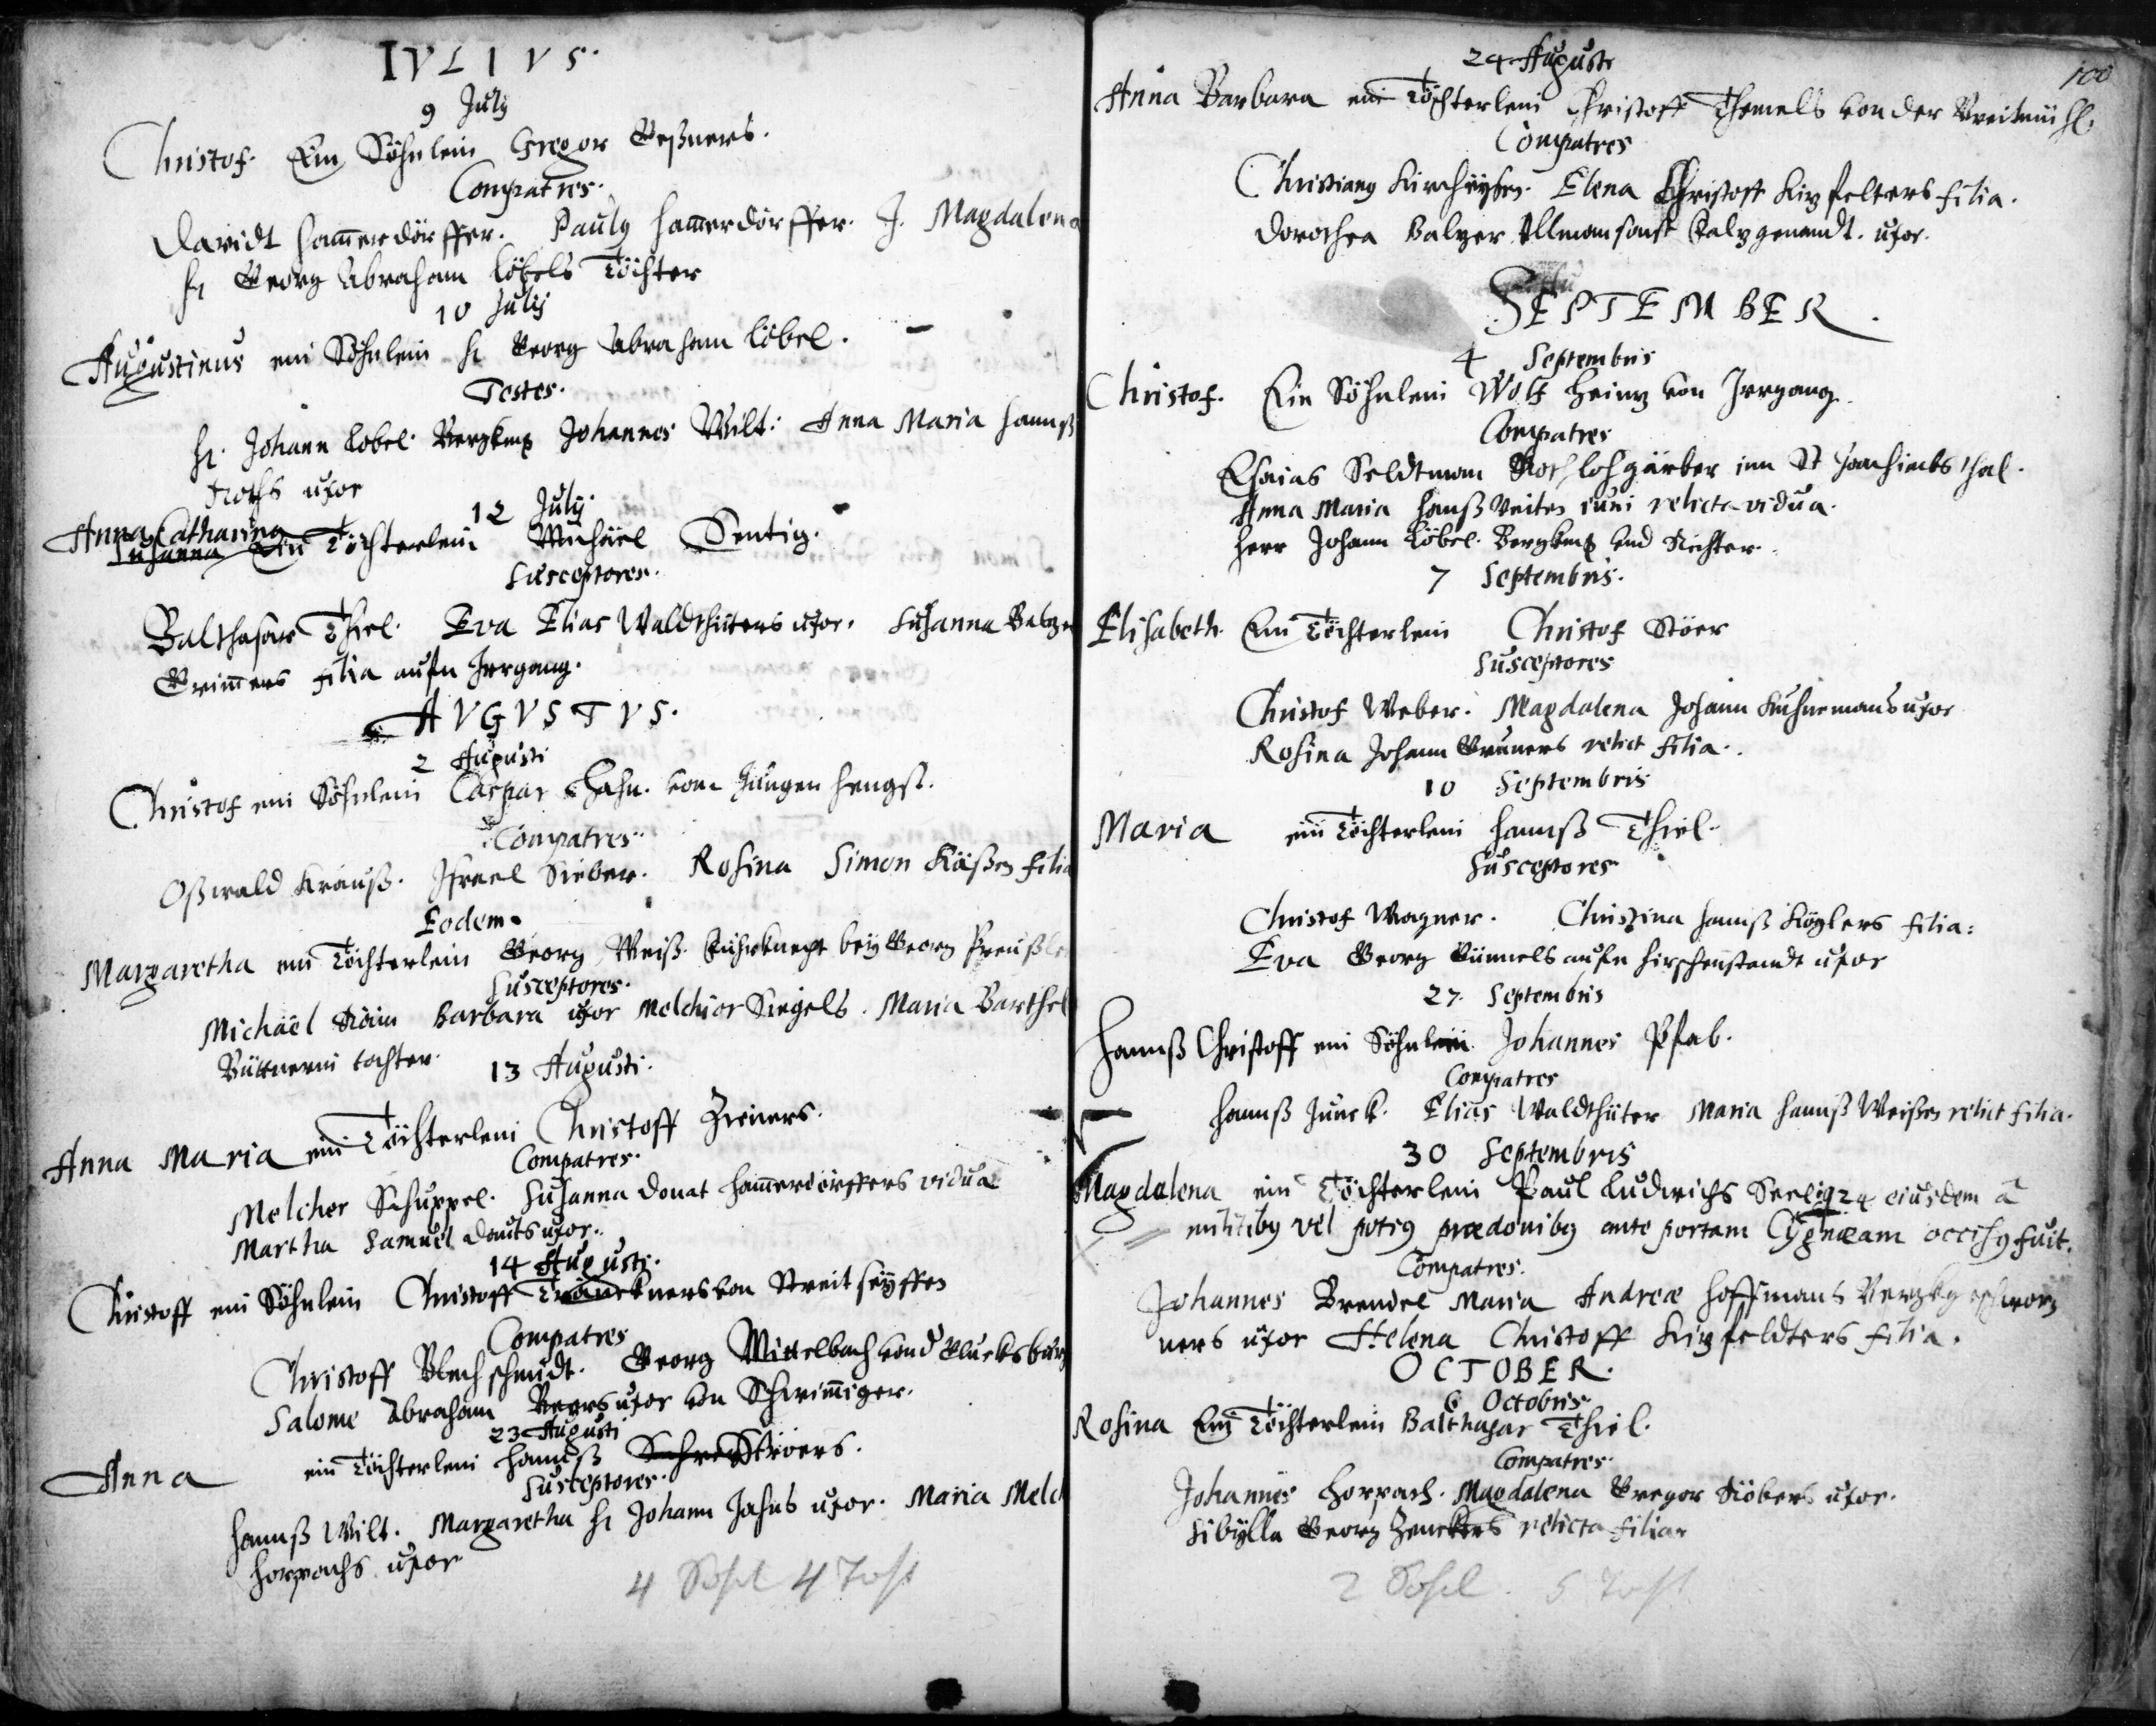 IVLIVS.
9 July
Christof. Ein Söhnlein Gregor Geßners.
Compatres.
Davidt Ham̄erdörffer. Pauly Ham̄erdörffer. J. Magdalena
H Georg Abraham Löbels Töchter
10 July
Augustinus ein Söhnlein H Georg Abraham Löbel.
Testes.
H. Johann Löbel. Bergkmg Johannes Wilt. Anna Maria Hannß
Roths uxor
12 July.
Anna Catharina
Susanna Ein Töchterlein Michäel Sentig.
Susceptores.
Balthasar Thiel. Eva Elias Waldthüters uxor. Susanna Balzer
Grim̄ers filia aufn Irrgang.
AVGVSTVS.
2 Augusti
Christof ein Söhnlein Caspar Hahn. vom Jungen Hengst.
Compatres.
Oßwald Krauß. Israel Sieber. Rosina Simon Käßen filia
Eodem.
Margaretha ein Töchterlein Georg Weiß. bey Georg Preußle
Susceptores.
Michäel Barbara uxor Melchior Siegels. Maria Barthel
Büttnerin tochter.
13 Augusti.
Anna Maria ein Töchterlein Christoff Zieners.
Compatres.
Melcher Schuppel. Susanna Donat Ham̄erdörffers vidua
Martha Samuel Donats uxor.
14 Augusti.
Christoff ein Söhnlein Christoff Tränckners von Streitseyffen
Compatres
Christoff Blechschmidt. Georg Mittelbach
Salome Abraham Beers uxor von Schwim̄iger.
23 Augusti
Anna ein Töchterlein Hannß Stöers.
Susceptores.
Hannß Wilt. Margaretha H Johann Jahns uxor. Maria Melch
Horpachs uxor
4 Söhl 4 Töcht
100
24 Augusti
Anna Barbara ein Töchterlein Christoff Themels von der Breitmühl.
Compatres
Christiang Kirchüysen. Elena Christoff Kirzfelters filia.
Dorothea Balzer Ullman sonst Salz genandt. uxor.
SEPTEMBER.
4 Septembris
Christof. Ein Söhnlein Wolf Heinz von Irrgang.
Compatres
Esaias Seldtman Rothlohgärber inn St Joachimbsthal.
Anna Maria Hanß Veites relicta vidua.
Herr Johann Löbel. Bergkmg und Richter.
7 Septembris.
Elisabeth. Ein Töchterlein Christof Stöer
Susceptores
Christof Weber. Magdalena Johann Kuhnemans uxor
Rosina Johann Gruners relict filia.
10 Septembris
Maria ein Töchterlein Hannß Thiel.
Susceptores
Christof Wagner. Christina Hannß Köglers filia:
Eva Georg Kümmels aufn Hirschenstandt uxor
27. Septembris
Hannß Christoff ein Söhnlein Johannes Pfab.
Compatres
Hannß Junck. Elias Waldthüter Maria Hannß Weißen relict filia.
30 Septembris
Magdalena ein Töchterlein Paul Ludwichs Seelig 24 eiusdem â
militibg vel potig prædonibg ante portam Cygneam occisg fuit.
Compatres.
Johannes Brendel Maria Andreæ Hoffmans Bergkgeschwor
ners uxor Helena Christoff Kirzfeldters filia.
OCTOBER.
6 Octobris.
Rosina Ein Töchterlein Balthasar Thiel.
Compatres.
Johannes Horpach. Magdalena Gregor Röbers uxor.
Sibylla Georg Zenckers relicta filia.
2 Söhl. 5 Töcht